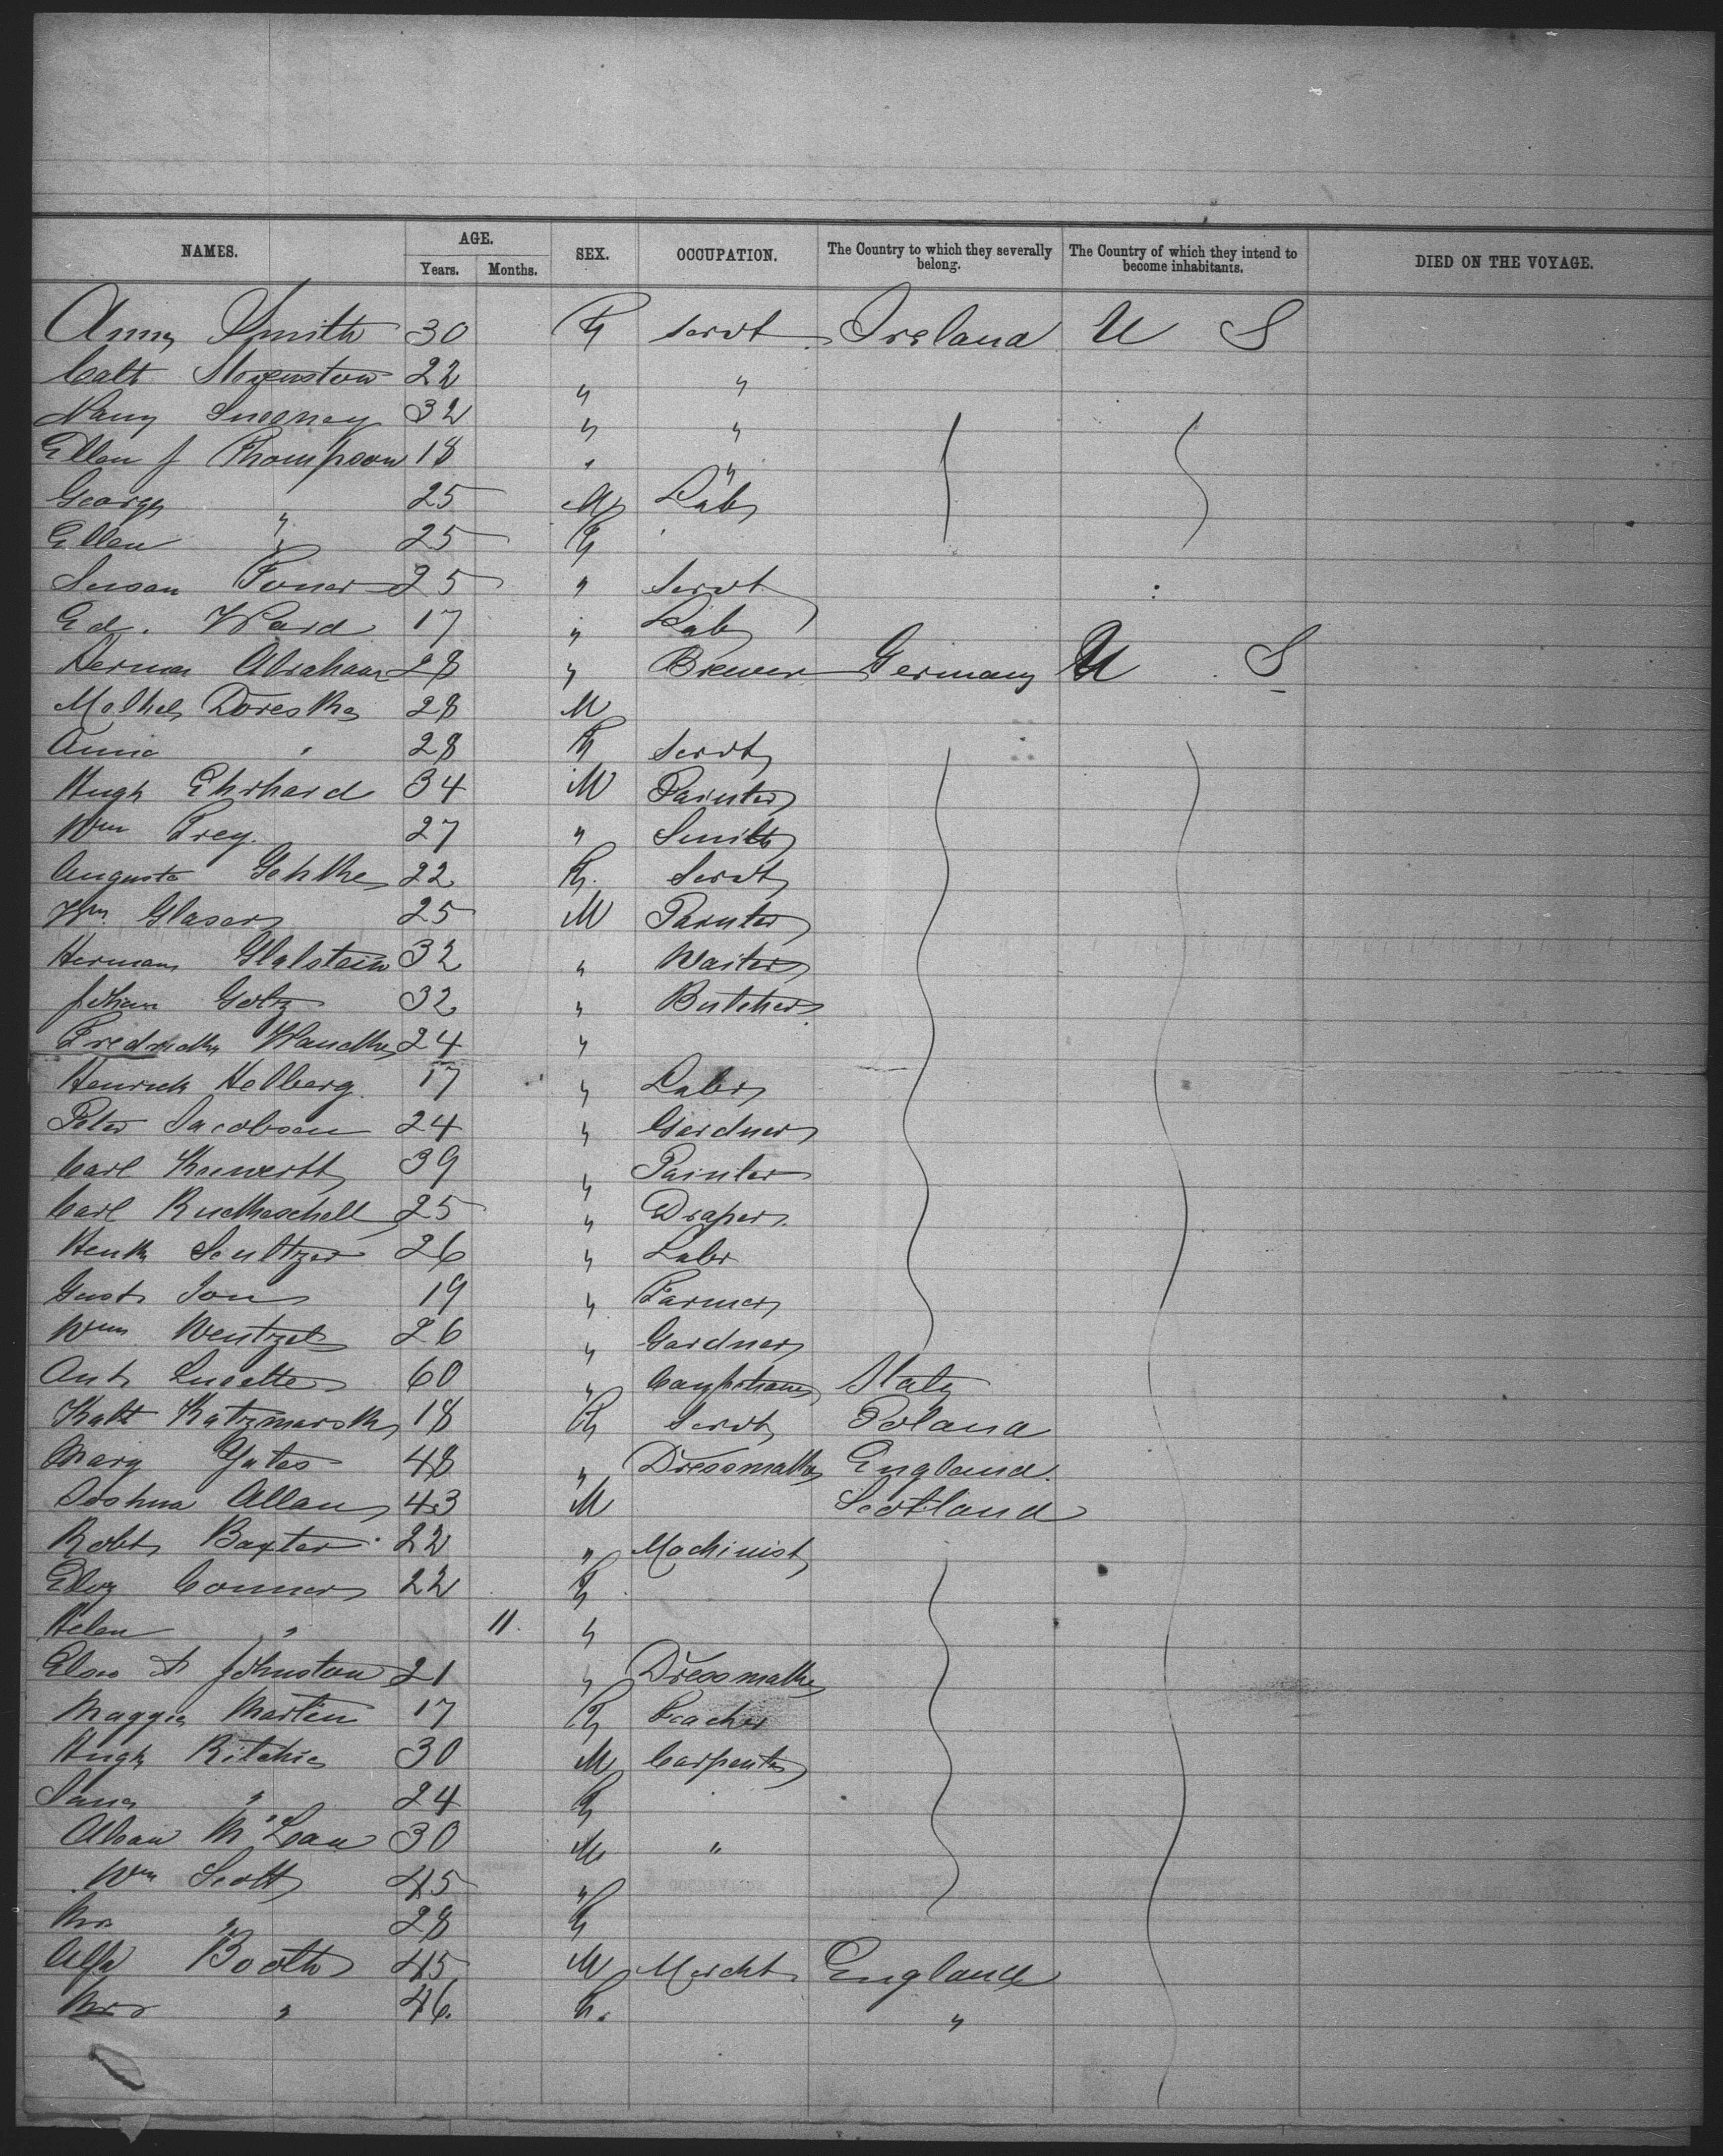 NAMES. AGE. SEX. OCCUPATION. The Country to which they severally belong. The Country of which they intend to become inhabitants. DIED ON THE VOYAGE.
Years. Months.
Anny Smith 30 F Servt Ireland U S
Cath 22 " "
Nany Sweeney 32 " "
Ellen J Thompson 18 " "
George " 25 M Lab
Ellen " 25 F
Susan 25 " Servt
Ed. Ward 17 " Lab
Herman Abraham 28 " Brewer Germany U S
28 M
Annie " 28 F Servt
Hugh Ehrhard 34 M Painter
Wm Frey. 27 " Smith
Augusta 22 F. Servt
Wm Glaser 25 M Painter
Herman Glalstein 32 " Waiter
Johan Goetz 32 " Butcher
24 "
Henrich Helberg. 17 " Labr
Peter Jacobsen 24 " Gardner
Carl 39 " Painter
Carl 25 " Draper.
26 " Labr
Gust 19 " Farmer
Wm Wentzel 26 " Gardner
Ant 60 " Italy
Kath 18 F Servt Poland
Mary Yates 48 " Dressmaker England.
Joshua Allan 43 M Scotland
Robt Baxter 22 " Machinist
Eliz Conner 22 F
Helen " 11. "
A Johnston 21 " Dressmake
Maggie Martin 17 F Teacher
Hugh Ritchie 30 M Carpenter
Jane " 24 F
McLean 30 M "
Wm Scott 45 "
Mrs " 28 F
Alfd Booth 45 M Mercht England
Mrs " 46. F. "